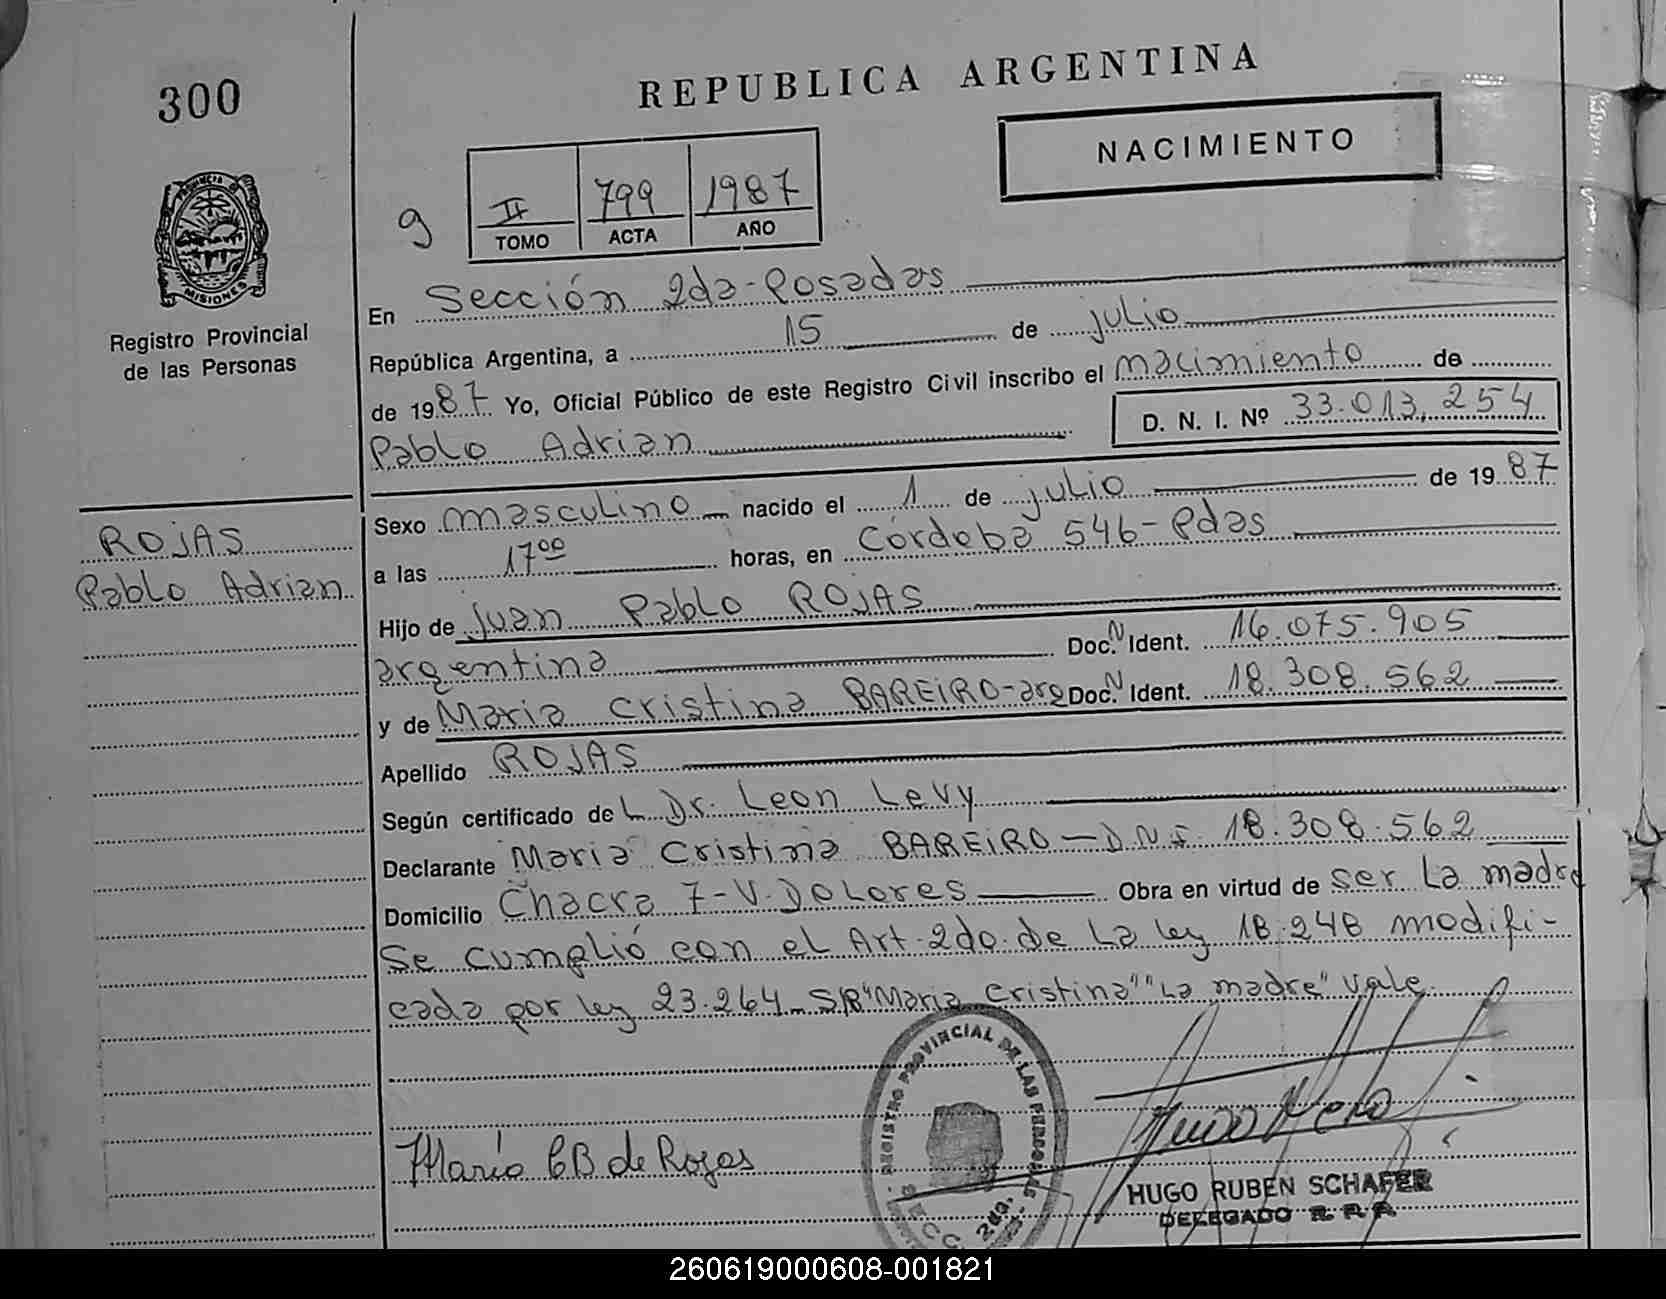 300
REPUBLICA ARGENTINA
NACIMIENTO
9
II 799 1987
TOMO ACTA AÑO
PROVINCIA DE
MISIONES
Registro Provincial
de las Personas
En Sección 2da-Posadas
República Argentina, a 15 de julio
de 1987 Yo, Oficial Público de este Registro Civil inscribo el nacimiento de
Pablo Adrian D. N. I. Nº 33.013.254
Sexo masculino nacido el 1 de julio de 1987
a las 17ºº horas, en Córdoba 546-Pdas
ROJAS
Pablo Adrian
Hijo de Juan Pablo ROJAS
argentina Doc. N Ident. 16.075.905
y de Maria Cristina BAREIRO-arg Doc. N Ident. 18.308.562
Apellido ROJAS
Según certificado de L Dr. Leon Levy
Declarante Maria Cristina BAREIRO-D.N.I. 18.308.562
Domicilio Chacra 7-V.Dolores Obra en virtud de ser la madre
Se cumplió con el Art.2do.de la ley 18.248 modifi-
cada por ley 23.264-S/R"Maria Cristina""La madre" vale
Maria C B de Rojas
REGISTRO PROVINCIAL DE LAS PERSONAS
SECC. 2da.
HUGO RUBEN SCHAFER
DELEGADO R. P. P.
260619000608-001821